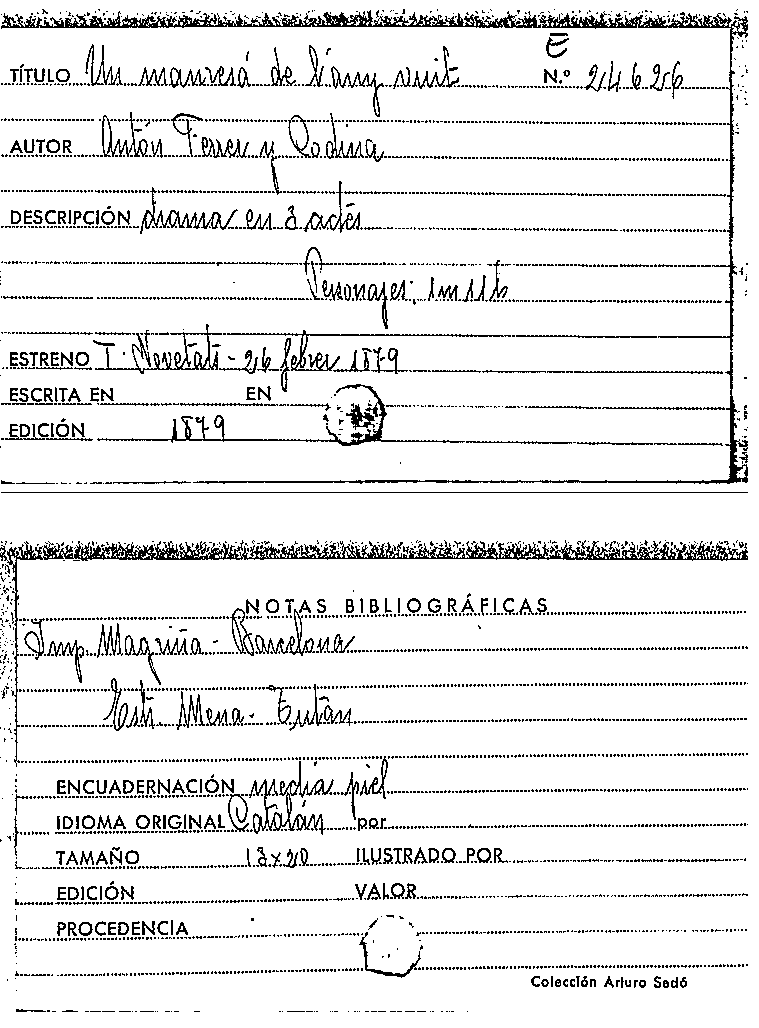 E
TÍTULO Un manresá de l'any vuit N.º 24626
AUTOR Antón Ferrer y Codina
DESCRIPCIÓN drama en 3 actes
Personajes: 1m 11h
ESTRENO T. Novetats - 26 febrer 1879
ESCRITA EN EN
EDICIÓN 1879
NOTAS BIBLIOGRÁFICAS
Imp. Magriña - Barcelona
Mena -
ENCUADERNACIÓN media piel
IDIOMA ORIGINAL Catalán por
TAMAÑO 13x20 ILUSTRADO POR
EDICIÓN VALOR
PROCEDENCIA
Colección Arturo Sedó